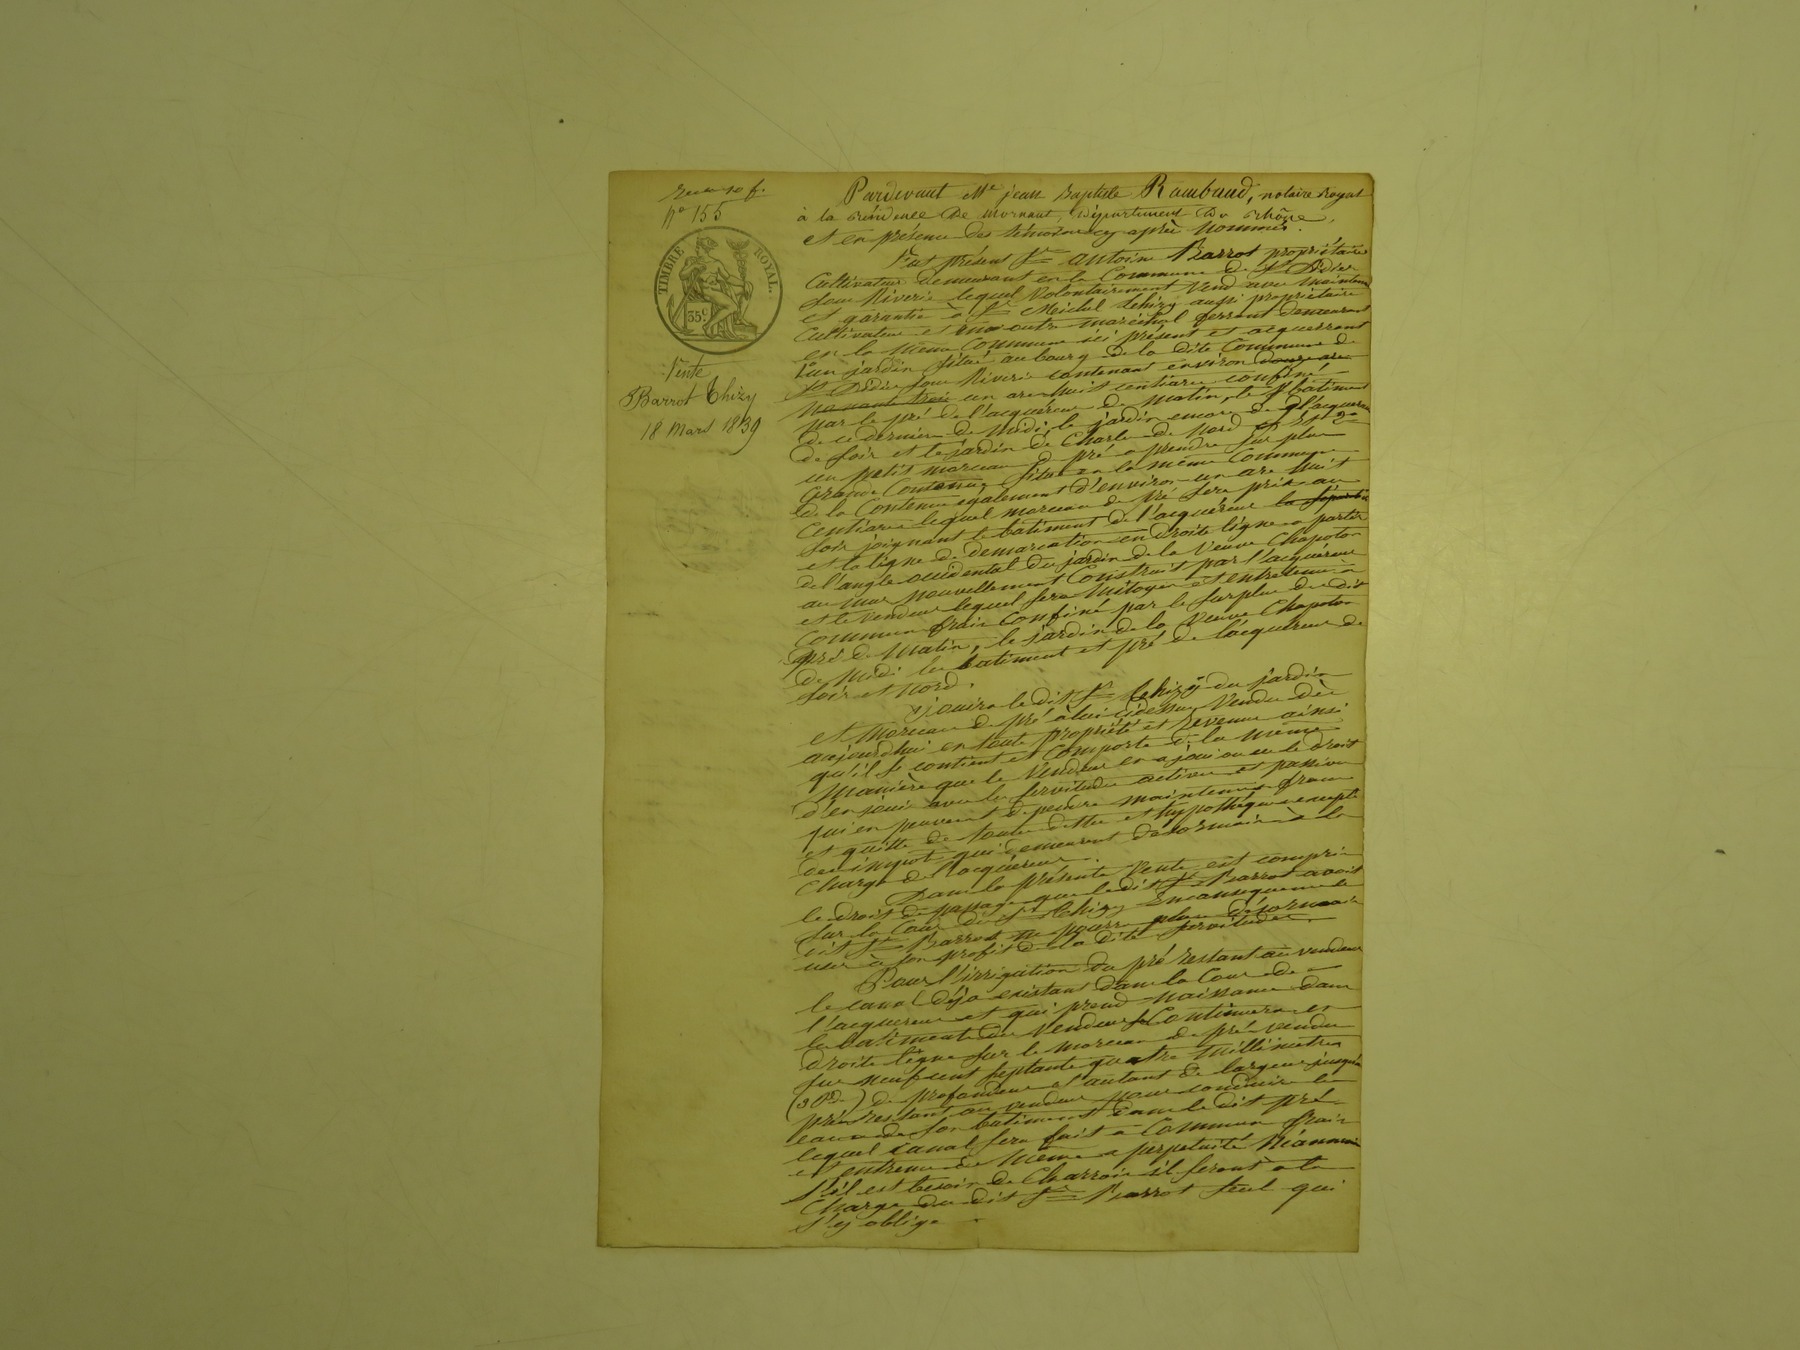 N° 155
TIMBRE ROYAL.
35 c
Vente
Barrot Thizy
18 Mars 1839
Pardevant Me jean Baptiste Rambaud, notaire Royal
à la résidence de mornant, département du Rhône,
et en présence des témoins cy après nommés.
Fut présent Sr antoine Barrot propriétaire
Cultivateur demeurant en la Commune de St Didier
sous Riverie lequel volontairement vend avec maintenue
et garantie à Sr Michel thizy aussi propriétaire
Cultivateur et en outre maréchal ferrant demeurant
en la même Commune ici présent et acquerrant
1° un jardin situé au bourg de la dite Commune de
St Didier sous Riverie contenant environ douze ares
nonante trois un are huit centiares confiné
par le pré de l'acquéreur de matin, le bâtiment
de ce dernier de midi, le jardin encore de l'acquereur
de soir et le jardin de Charle de nord Et 2°
un petit morceau de pré a prendre sur plus
Grande Contenue situé en la même Commune
de la Contenue egalement d'environ un are huit
Centiares lequel morceau de pré sera pris au
soir joignant le batiment de l'acquéreur
et la ligne de demarcation en droite ligne a partir
de l'angle occidental du jardin de la Veuve Chapoton
au mur nouvellement Construit par l'acquéreur
et le vendeur lequel sera mitoyen et entretenu à
Commun frais Confiné par le surplus du dit
pré de matin, le jardin de la Veuve Chapoton
de midi les batiment et pré de l'acquéreur de
soir et nord.
jouira le dit Sr thizy du jardin
et morceau de pré à lui cidessus vendu dès
aujourdhui en toute propriété et revenu ainsi
qu'il se contient et Comporte de la même
manière que le Vendeur en a joui ou eu le droit
d'en jouir avec les servitudes actives et passives
qui en peuvent dependre maintenus francs
et quitte de toutes dettes et hypothèques excepté
des impots qui demeurent désormais à la
charge de l'acquéreur.
Dans la présente Vente est compris
le droit de passage que le dit Sr Barrot avoit
sur la Cour du Sr thizy En consequence le
dit Sr Barrot ne pourra plus désormais
user à son profit de la dite servitude.
Pour l'irrigation du pré restant au vendeur
le canal déja existant dans la Cour de
l'acquereur et qui prend naissance dans
les batiments du Vendeur Continuera en
droite ligne sur le morceau de pré vendu
sur neuf cent septante quatre millimètres
(3 Pds) de profondeur et autant de largeur jusqu'au
pré restant au vendeur pour conduire les
eaux de son batiment dans le dit pré
lequel canal sera fait a Commun frais
et entretenu de même a perpétuité Néanmoins
s'il est besoin de Charrois ils seront a la
charge du dit Sr Barrot seul qui
s'y oblige.